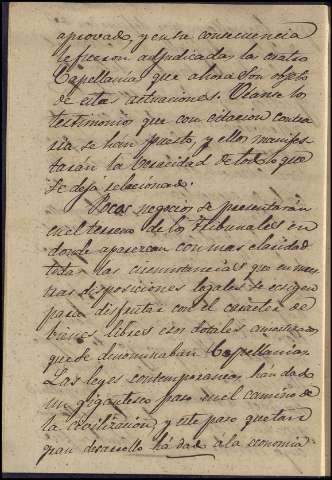 aprovado, y en su consecuencia
le fueron adjudicadas las cuatro
Capellanías que ahora son objeto
de estas actuaciones. Veanse los
testimonios que con citacion contra
ria se han puesto, y ellos manifes
tarán la veracidad de todo lo que
se deja relacionado.
Pocos negocios se presentarán
en el terreno de los Tribunales en
donde aparezcan con mas claridad
todas las circunstancias que en nues
tras disposiciones legales se exigen
para disfrutar con el caracter de
bienes libres esos dotales
que se denominaban Capellanias.
Las leyes contemporaneas han dado
un gigantesco paso en el camino de
la civilizacion, y este paso que tan
gran desarrollo há dado a la economia